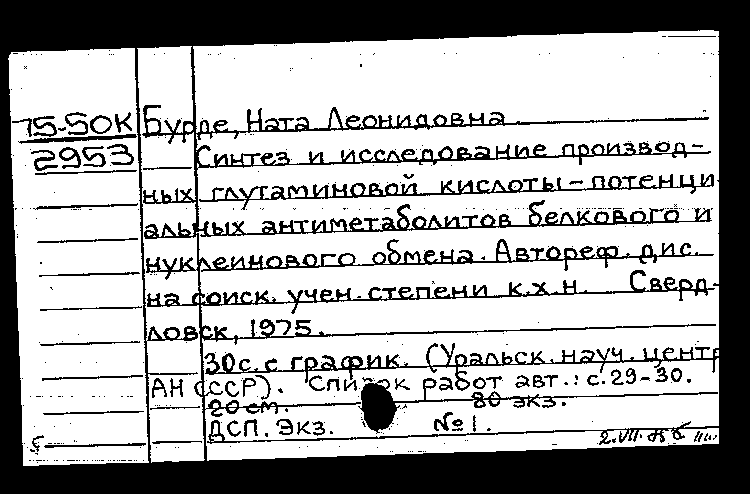 75-50К Бурде, Ната Леонидовна
2953 Синтез и исследование производ-
ных глутаминовой кислоты - потенци
альных антиметаболитов белкового и
нуклеинового обмена. Автореф. дис.
на соиск. учен. степени к.х.н. Сверд-
ловск, 1975.
30с. с график. (Уральск. науч. центр
АН СССР). Список работ авт.: с. 29-30.
20 см. 80 экз.
ДСП. Экз. №1.